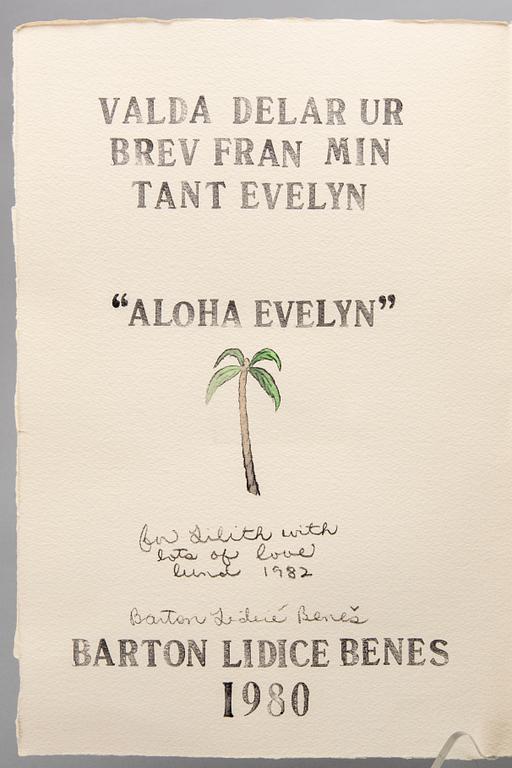 VALDA DELAR UR
BREV FRAN MIN
TANT EVELYN
“ALOHA EVELYN”
for Lilith with
lots of love
Lund 1982
Barton Lidicé Beneš
BARTON LIDICE BENES
1980